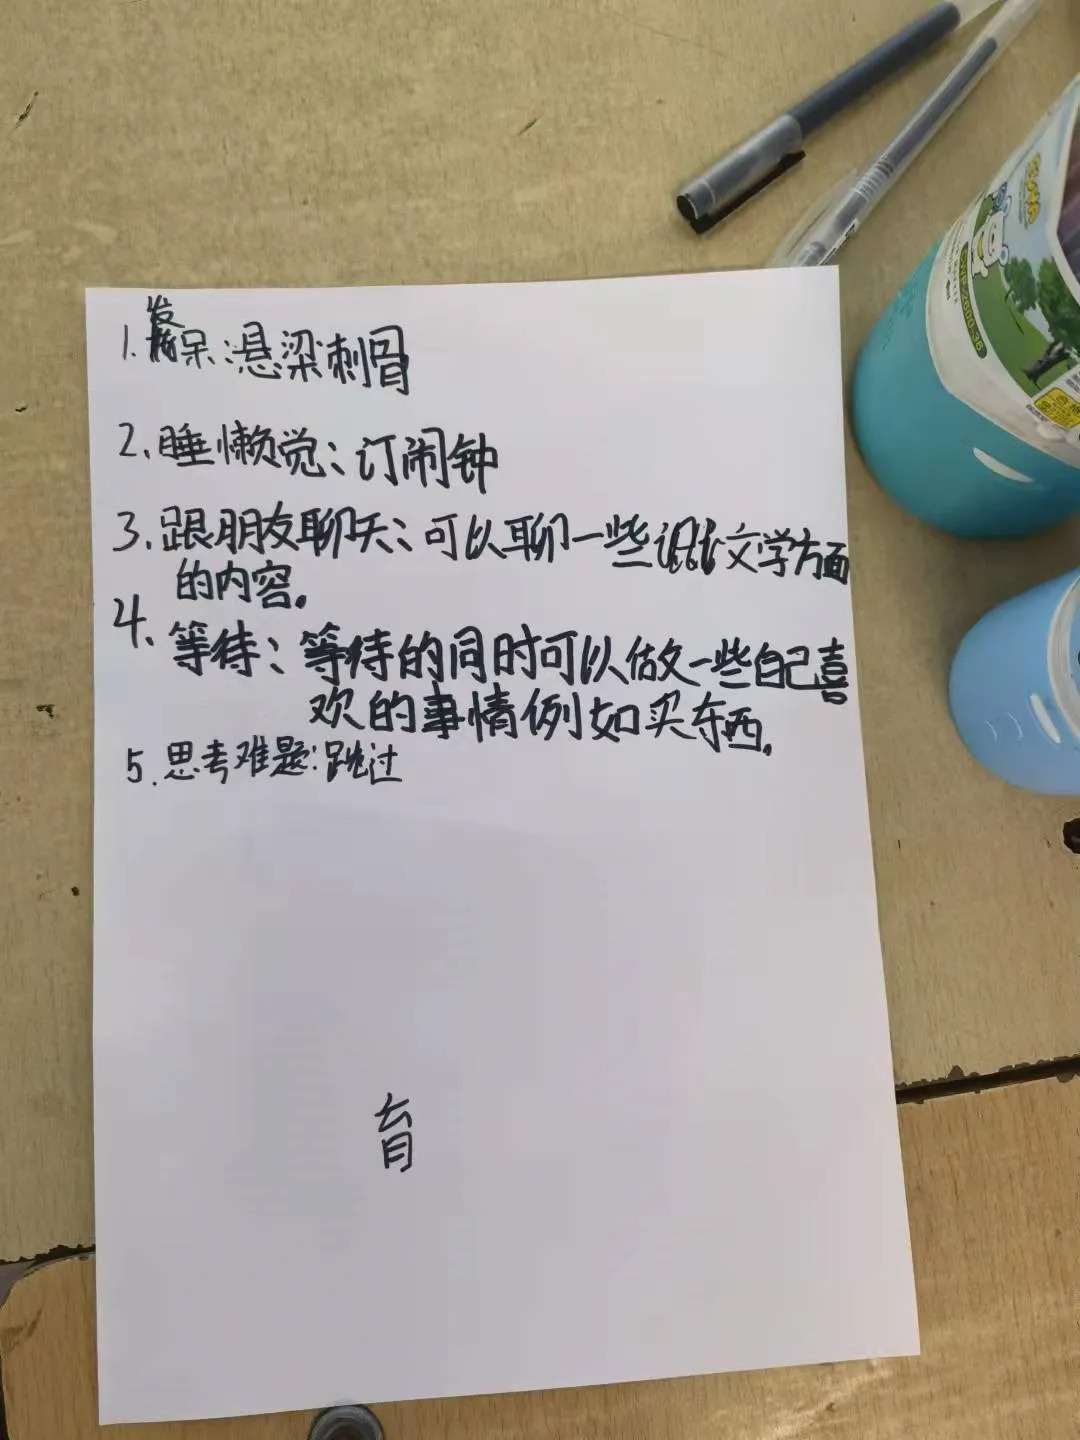 1.发呆:悬梁刺骨
2.睡懒觉:订闹钟
3.跟朋友聊天:可以聊一些文学方面
的内容。
4.等待:等待的同时可以做一些自己喜
欢的事情例如买东西。
5.思考难题:跳过
育